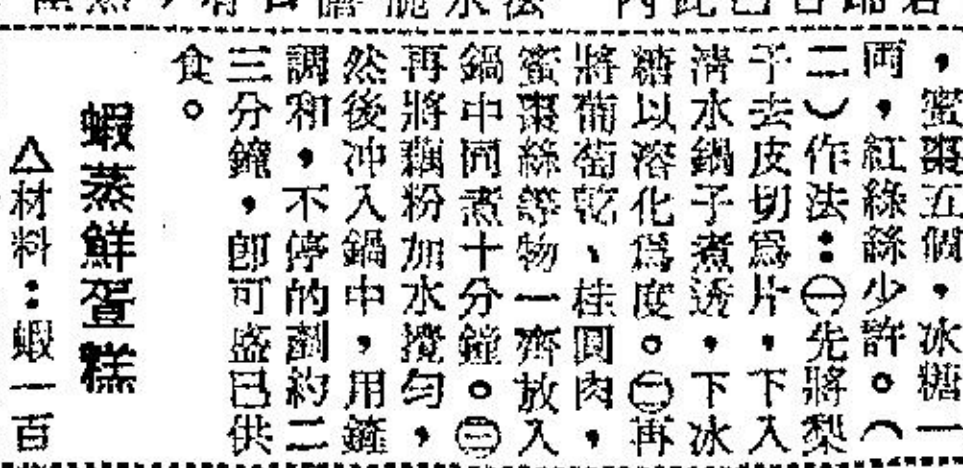 ，蜜棗五個，冰糖一
両，紅綠絲少許。（
二）作法：㊀先將梨
子去皮切爲片，下入
清水鍋子煮透，下冰
糖以溶化爲度。㊁再
將葡萄乾、桂圓肉，
蜜棗絲等物一齊放入
鍋中同煮十分鐘。㊂
再將藕粉加水攪勻，
然後冲入鍋中，用鏟
調和，不停的剷約二
三分鐘，卽可盛已供
食。
蝦蒸鮮疍糕
△材料：蝦一百